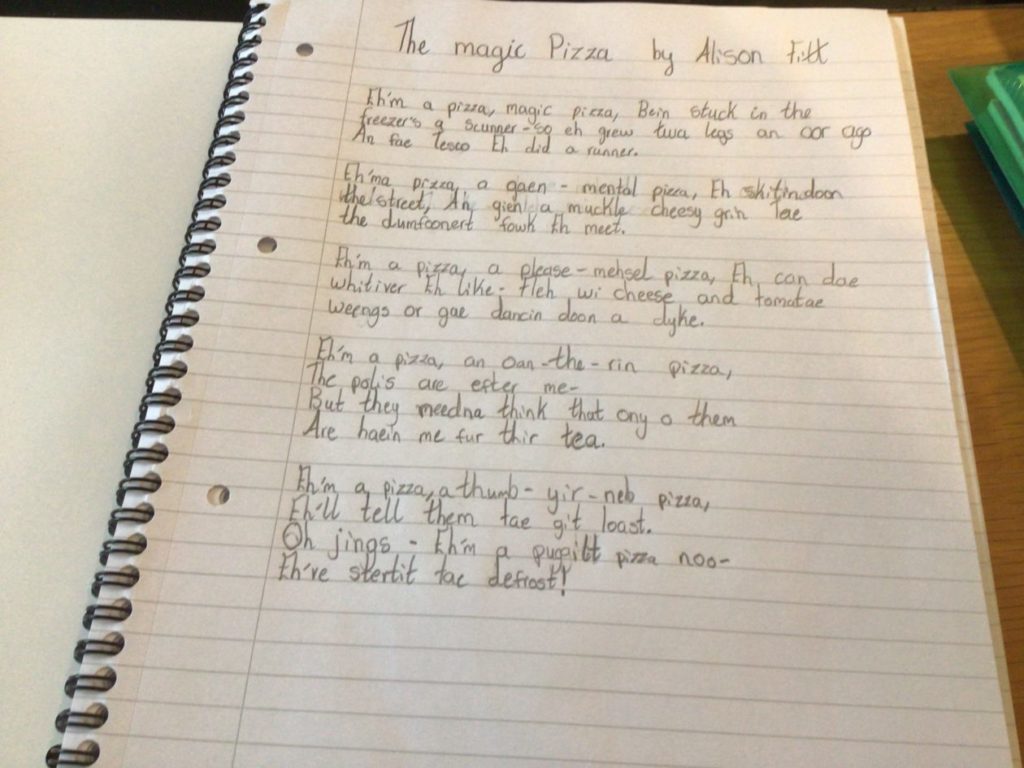 The magic Pizza by Alison Fitt
Eh'm a pizza, magic pizza, Bein stuck in the
freezer's a scunner - so eh grew twa legs an oor ago
An fae Tesco Eh did a runner.
Eh'ma pizza, a gaen - mental pizza, Eh skitin doon
the street, An gien a muckle cheesy grin tae
the dumfoonert fowk Eh meet.
Eh'm a pizza, a please - mehsel pizza, Eh can dae
whitiver Eh like - Fleh wi cheese and tomatae
weengs or gae dancin doon a dyke.
Eh'm a pizza, an oan - the - rin pizza,
The polis are efter me -
But they needna think that ony o them
Are haein me fur thir tea.
Eh'm a pizza, a thumb - yir - neb pizza,
Eh'll tell them tae git loast.
Oh jings - Eh'm a pizza noo -
Eh've stertit tae defrost!